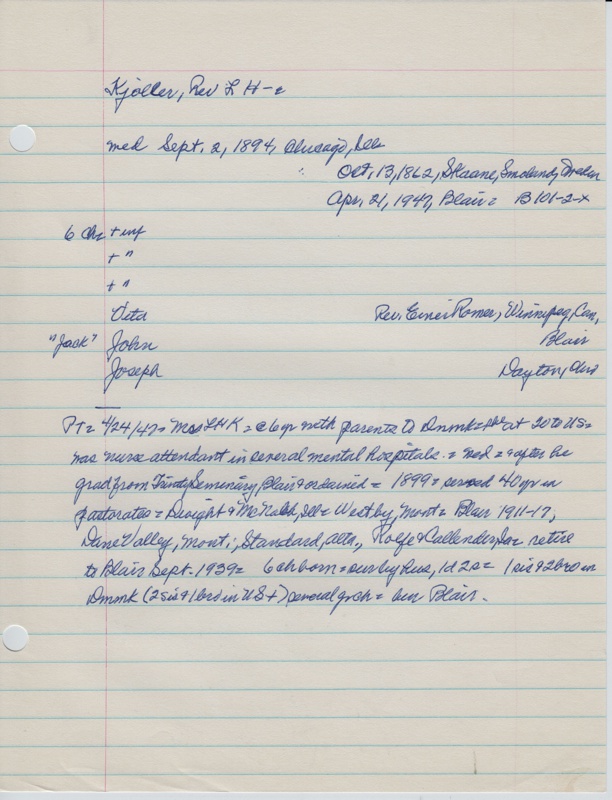 Kjoller, Rev L H - c
med Sept. 2, 1894, Chicago, Ills
Oct. 13, 1862, Skaane, Smolund, Sweden
Apr. 21, 1947, Blair = B101-2-x
6 Chr + inf
+ "
+ "
Veta Rev. Einer Romer, Winnipeg, Can,
"Jack" John Blair
Joseph Dayton, Ohio
PT = 4/24/47 = Mrs LHK = @ 6 yr with parents to Dnmk = she at 20 to US =
was nurse attendant in several mental hospitals. = med = & after he
grad from Trinity Seminary, Blair & ordained = 1899 = served 40 yr in
pastorates = Dwight & Ills = Westby, Mont = Blair 1911-17,
Dane Valley, Mont; Standard, Alta, Rolfe & Callender, Ia = retire
to Blair Sept. 1939 = 6 ch born = sur by hus, 1d 2s = 1 sis & 2 bro in
Dnmk (2 sis & 1 bro in US +) several grch = bur Blair.